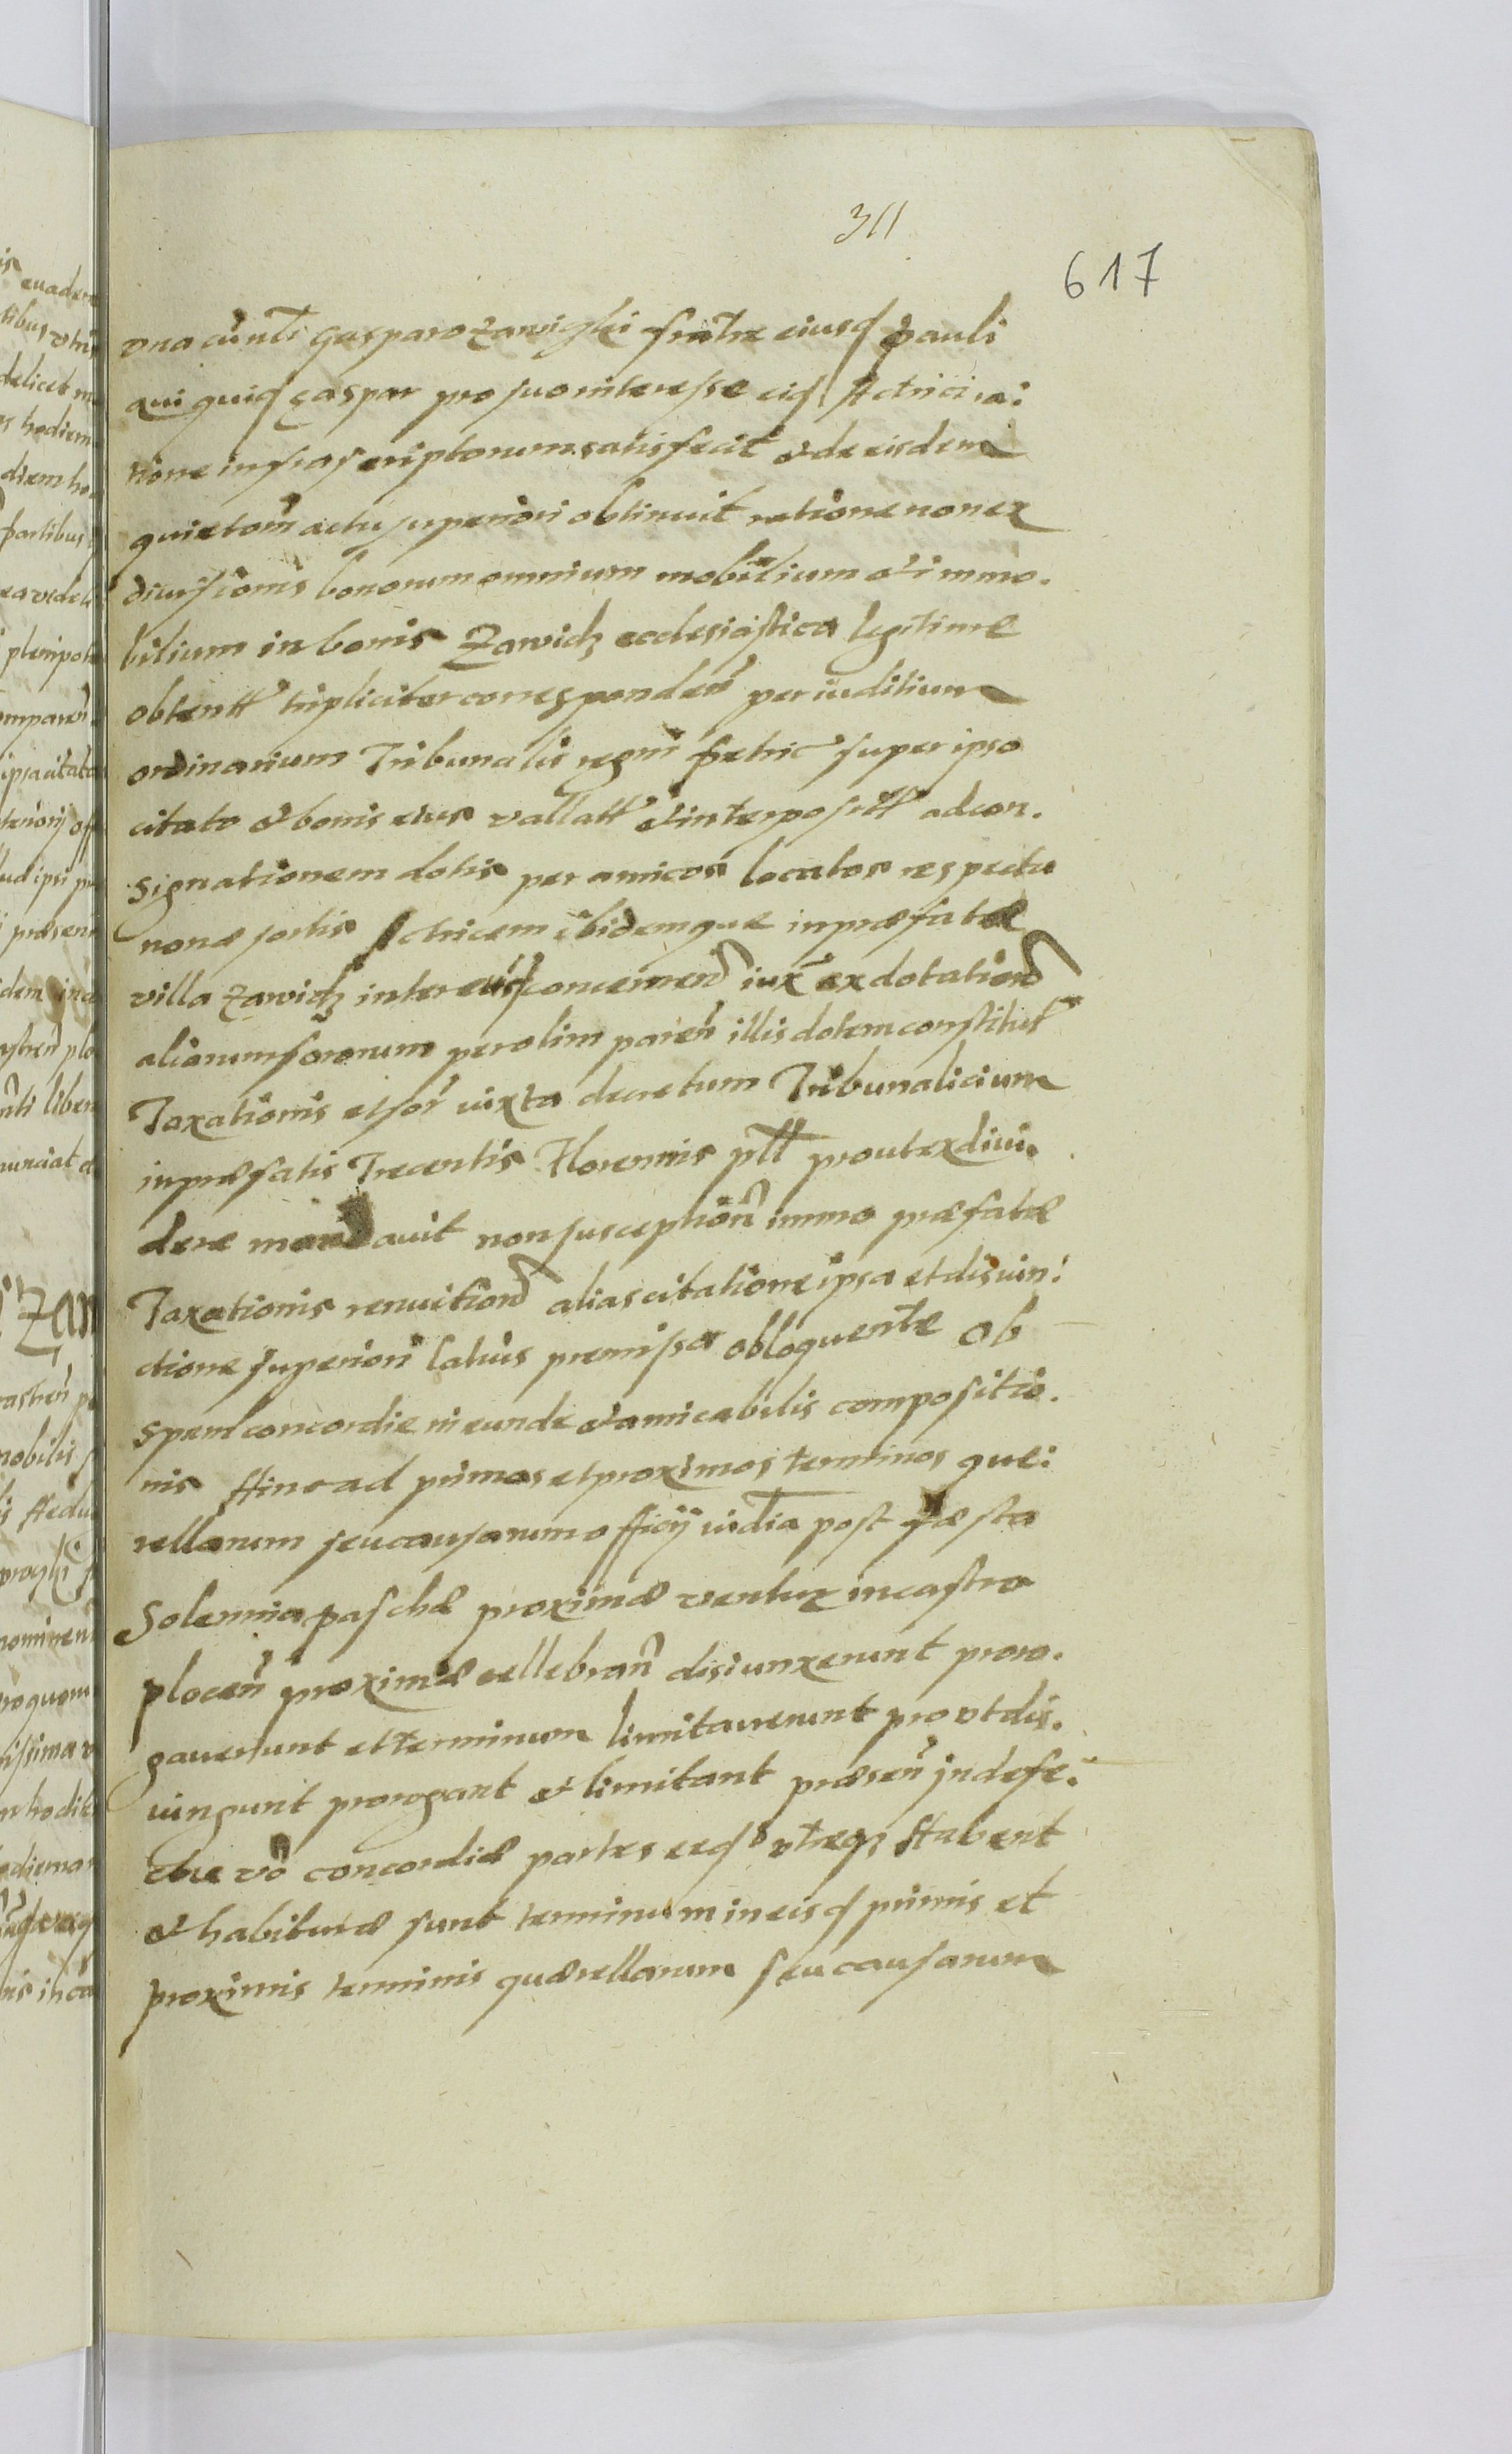 311
617
vna cũ nłi Gasparo Zawighi fratre eiusd Pauli
qui quid Gaspar pro suo interesse eid Actrici ra:
tione infrascriptorum satisfecit & de eisdem
quietoñ actu superiori obtinuit ratione non ex
divisionis bonorum omnium mobilium & immo.
bilium in bonis Zawidz ecclesiastica legitime
obtentt tripliciter corresponden per iuditium
ordinarium Tribunalis regni Petric super ipso
citato & bonis eius vallatt & interpositt ad con.
signationem dotis per amicos locatos respectu
nonæ sortis Actricem ibidemque in præfatæ
villa Zawidz inter concernen iux ex dotation
aliarum sororum per olim paren illis dotem constitut
Taxationis et sor iuxta decretum Tribunalicium
in præfatis Trecentis Florennis pll prout exdiui.
dere mandauit non susception immo præfatæ
Taxationis renuition alias citatione ipsa et disiun:
ctione superiori latius premissa obloquente Ob
spem concordie ineunde & amicabilis compositio.
nis Hinc ad primos et proximos terminos que:
rellarum seu causarum officÿ iudia post fæsta
Solennia paschæ proximæ ventur in castro
plocen proximæ cellebran disiunxerunt proro.
gauerunt et terminum limitauerunt prout dis.
iungunt prorogant & limitant præsen in defe.
ctu vo concordiæ partes eed vtræq Habent
& habituræ sunt terminum in eisd primis et
proximis terminis quærellarum seu causarum